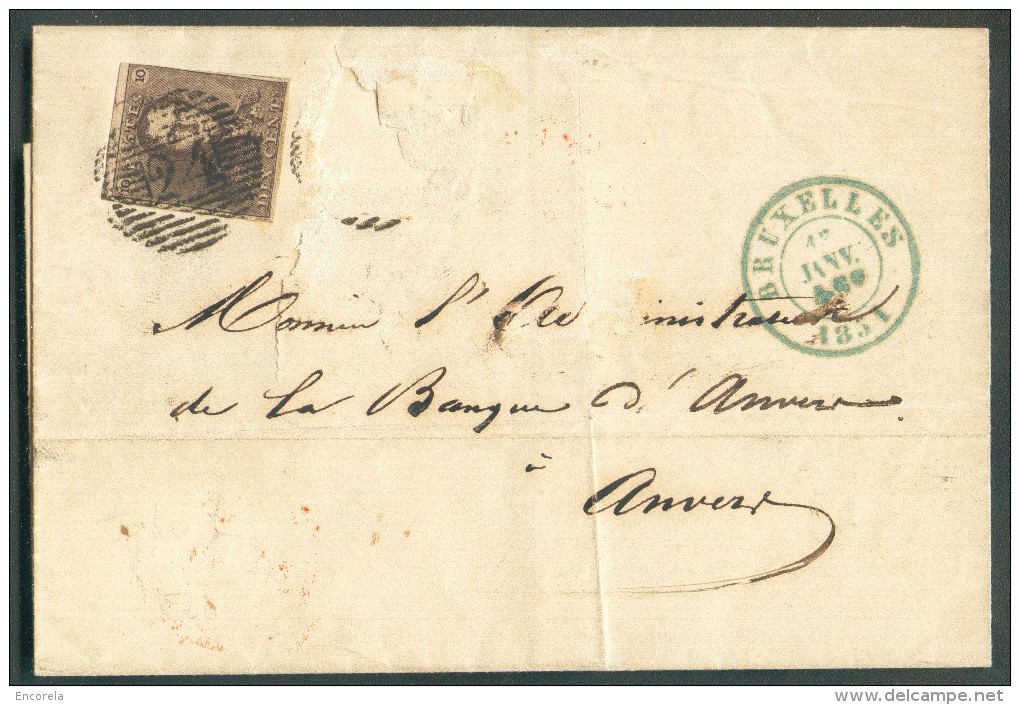 10
10
POSTES
DIX CENTS
24
BRUXELLES
JANV.
1851
Monsieur l'Administrateur
de la Banque d'Anvers
à
Anvers
Encorela
delcampe.net